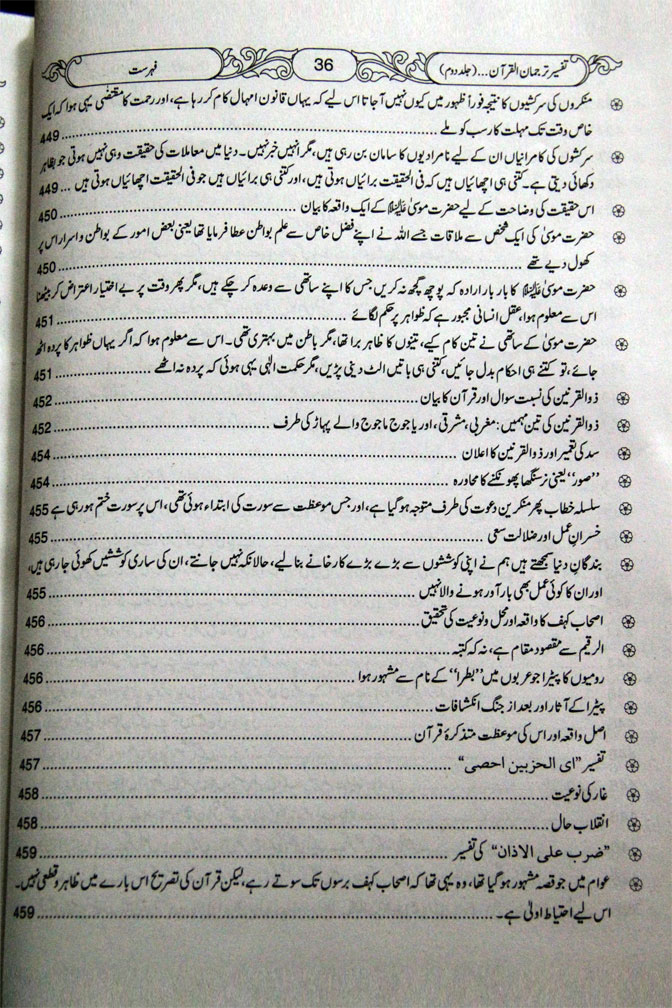 تفسیر ترجمان القرآن ...(جلد دوم)
36
فہرست
منکروں کی سرکشیوں کا نتیجہ فوراً ظہور میں کیوں نہیں آ جاتا اس لیے کہ یہاں قانون امہال کام کر رہا ہے، اور رحمت کا مقتضٰی یہی ہوا کہ ایک
خاص وقت تک مہلت کار سب کو ملے ........ 449
سرکشوں کی کامرانیاں ان کے لیے نامرادیوں کا سامان بن رہی ہیں، مگر انہیں خبر نہیں۔ دنیا میں معاملات کی حقیقت وہی نہیں ہوتی جو بظاہر
دکھائی دیتی ہے۔ کتنی ہی اچھائیاں ہیں کہ فی الحقیقت برائیاں ہوتی ہیں، اور کتنی ہی برائیاں ہیں جو فی الحقیقت اچھائیاں ہوتی ہیں ... 449
اس حقیقت کی وضاحت کے لیے حضرت موسیٰ علیہ السلام کے ایک واقعہ کا بیان ........ 450
حضرت موسیٰ کی ایک شخص سے ملاقات جسے اللہ نے اپنے فضل خاص سے علم بواطن عطا فرمایا تھا یعنی بعض امور کے بواطن و اسرار اس پر
کھول دیے تھے ........ 450
حضرت موسیٰ علیہ السلام کا بار بار ارادہ کہ پوچھ گچھ نہ کریں جس کا اپنے ساتھی سے وعدہ کر چکے ہیں، مگر پھر وقت پر بے اختیار اعتراض کر بیٹھنا
اس سے معلوم ہوا، عقل انسانی مجبور ہے کہ ظواہر پر حکم لگائے ........ 451
حضرت موسیٰ کے ساتھی نے تین کام کیے، تینوں کا ظاہر برا تھا، مگر باطن میں بہتری تھی۔ اس سے معلوم ہوا کہ اگر یہاں ظواہر کا پردہ اٹھ
جائے، تو کتنے ہی احکام بدل جائیں، کتنی ہی باتیں الٹ دینی پڑیں، مگر حکمت الٰہی یہی ہوئی کہ پردہ نہ اٹھے ........ 451
ذوالقرنین کی نسبت سوال اور قرآن کا بیان ........ 452
ذوالقرنین کی تین مہمیں: مغربی، مشرقی، اور یاجوج ماجوج والے پہاڑ کی طرف ........ 452
سد کی تعمیر اور ذوالقرنین کا اعلان ........ 454
’’صور‘‘ یعنی نرسنگھا پھونکنے کا محاورہ ........ 454
سلسلہ خطاب پھر منکرین دعوت کی طرف متوجہ ہو گیا ہے، اور جس موعظت سے سورت کی ابتداء ہوئی تھی، اس پر سورت ختم ہو رہی ہے 455
خسران عمل اور ضلالت سعی ........ 455
بندگان دنیا سمجھتے ہیں ہم نے اپنی کوششوں سے بڑے بڑے کارخانے بنا لیے، حالانکہ نہیں جانتے، ان کی ساری کوششیں کھوئی جا رہی ہیں،
اور ان کا کوئی عمل بھی بار آور ہونے والا نہیں ........ 455
اصحاب کہف کا واقعہ اور محل و نوعیت کی تحقیق ........ 456
الرقیم سے مقصود مقام ہے، نہ کہ کتبہ ........ 456
رومیوں کا پیٹرا جو عربوں میں ’’بطرا‘‘ کے نام سے مشہور ہوا ........ 456
پیٹرا کے آثار اور بعد از جنگ انکشافات ........ 456
اصل واقعہ اور اس کی موعظت متذکرۂ قرآن ........ 457
تفسیر "ای الحزبین احصی" ........ 457
غار کی نوعیت ........ 458
انقلاب حال ........ 458
"ضرب علی الاذان" کی تفسیر ........ 459
عوام میں جو قصہ مشہور ہو گیا تھا، وہ یہی تھا کہ اصحاب کہف برسوں تک سوتے رہے، لیکن قرآن کی تصریح اس بارے میں ظاہر و قطعی نہیں۔
اس لیے احتیاط اولیٰ ہے۔ ........ 459